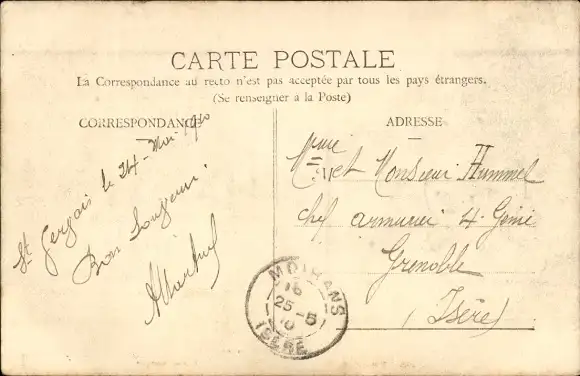 CARTE POSTALE
La Correspondance au recto n'est pas acceptée par tous les pays étrangers.
(Se renseigner à la Poste)
CORRESPONDANCE
St Gervais le 24 Mai 1910
Bon Souvenir
ADRESSE
Mme et Monsieur Hummel
chef armurier 4e Génie
Grenoble
(Isère)
MOIRANS
16
25-5
10
ISÈRE